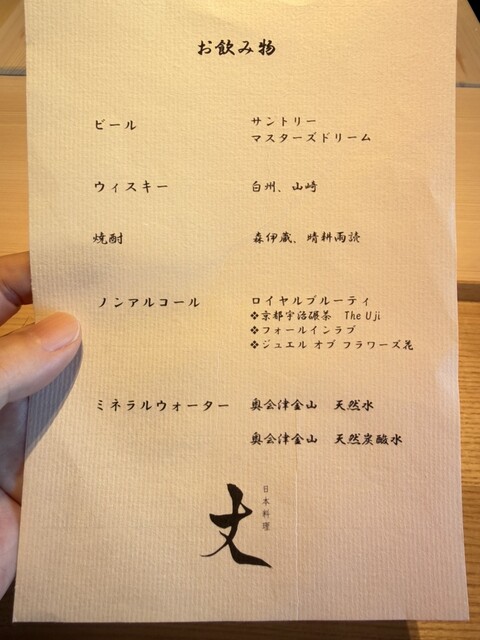 お飲み物
ビール サントリー
マスターズドリーム
ウィスキー 白州、山崎
焼酎 森伊蔵、晴耕雨読
ノンアルコール ロイヤルブルーティ
❖京都宇治碾茶 The Uji
❖フォールインラブ
❖ジュエル オブ フラワーズ花
ミネラルウォーター 奥会津金山 天然水
奥会津金山 天然炭酸水
日本料理
丈